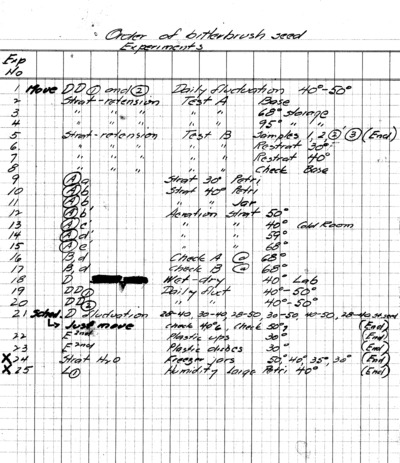 Order of bitterbrush seed
Experiments
Exp
No
1 Move DD① and ② Daily fluctuation 40°-50°
2 Strat-retension Test A Base
3 " " " " 68° storage
4 " " " " 95° "
5 Strat-retension Test B Samples 1, 2, ③ (End)
6. " " " " Restrat 30°
7. " " " " Restrat 40°
8 " " " " Check Base
9 Ⓐa Strat 30° Petri
10 Ⓐb Strat 40° Petri
11 Ⓐb' " " Jar
12 Aeration Strat 50°
13 " " 40° Cold Room
14 " " 59°
15 " " 68°
16 B,d Check A @ 68°
17 B,d Check B @ 68°
18 D Wet-dry 40° Lab
19 DD Daily fluct 40°-50°
20 DD " " 40°-50°
21 Sched. D fluctuation 28-40, 30-40, 28-50, 30-50, 40-50, 28-40
↳ Just move check 40°s, check 50°s (End)
22 E 2nd Plastic cups 30° (End)
23 E 2nd Plastic dishes 30° (End)
X 24 Strat H2O Freezer jars 50°, 40°, 35°, 30° (End)
X 25 L① Humidity Large Petri 40° (End)